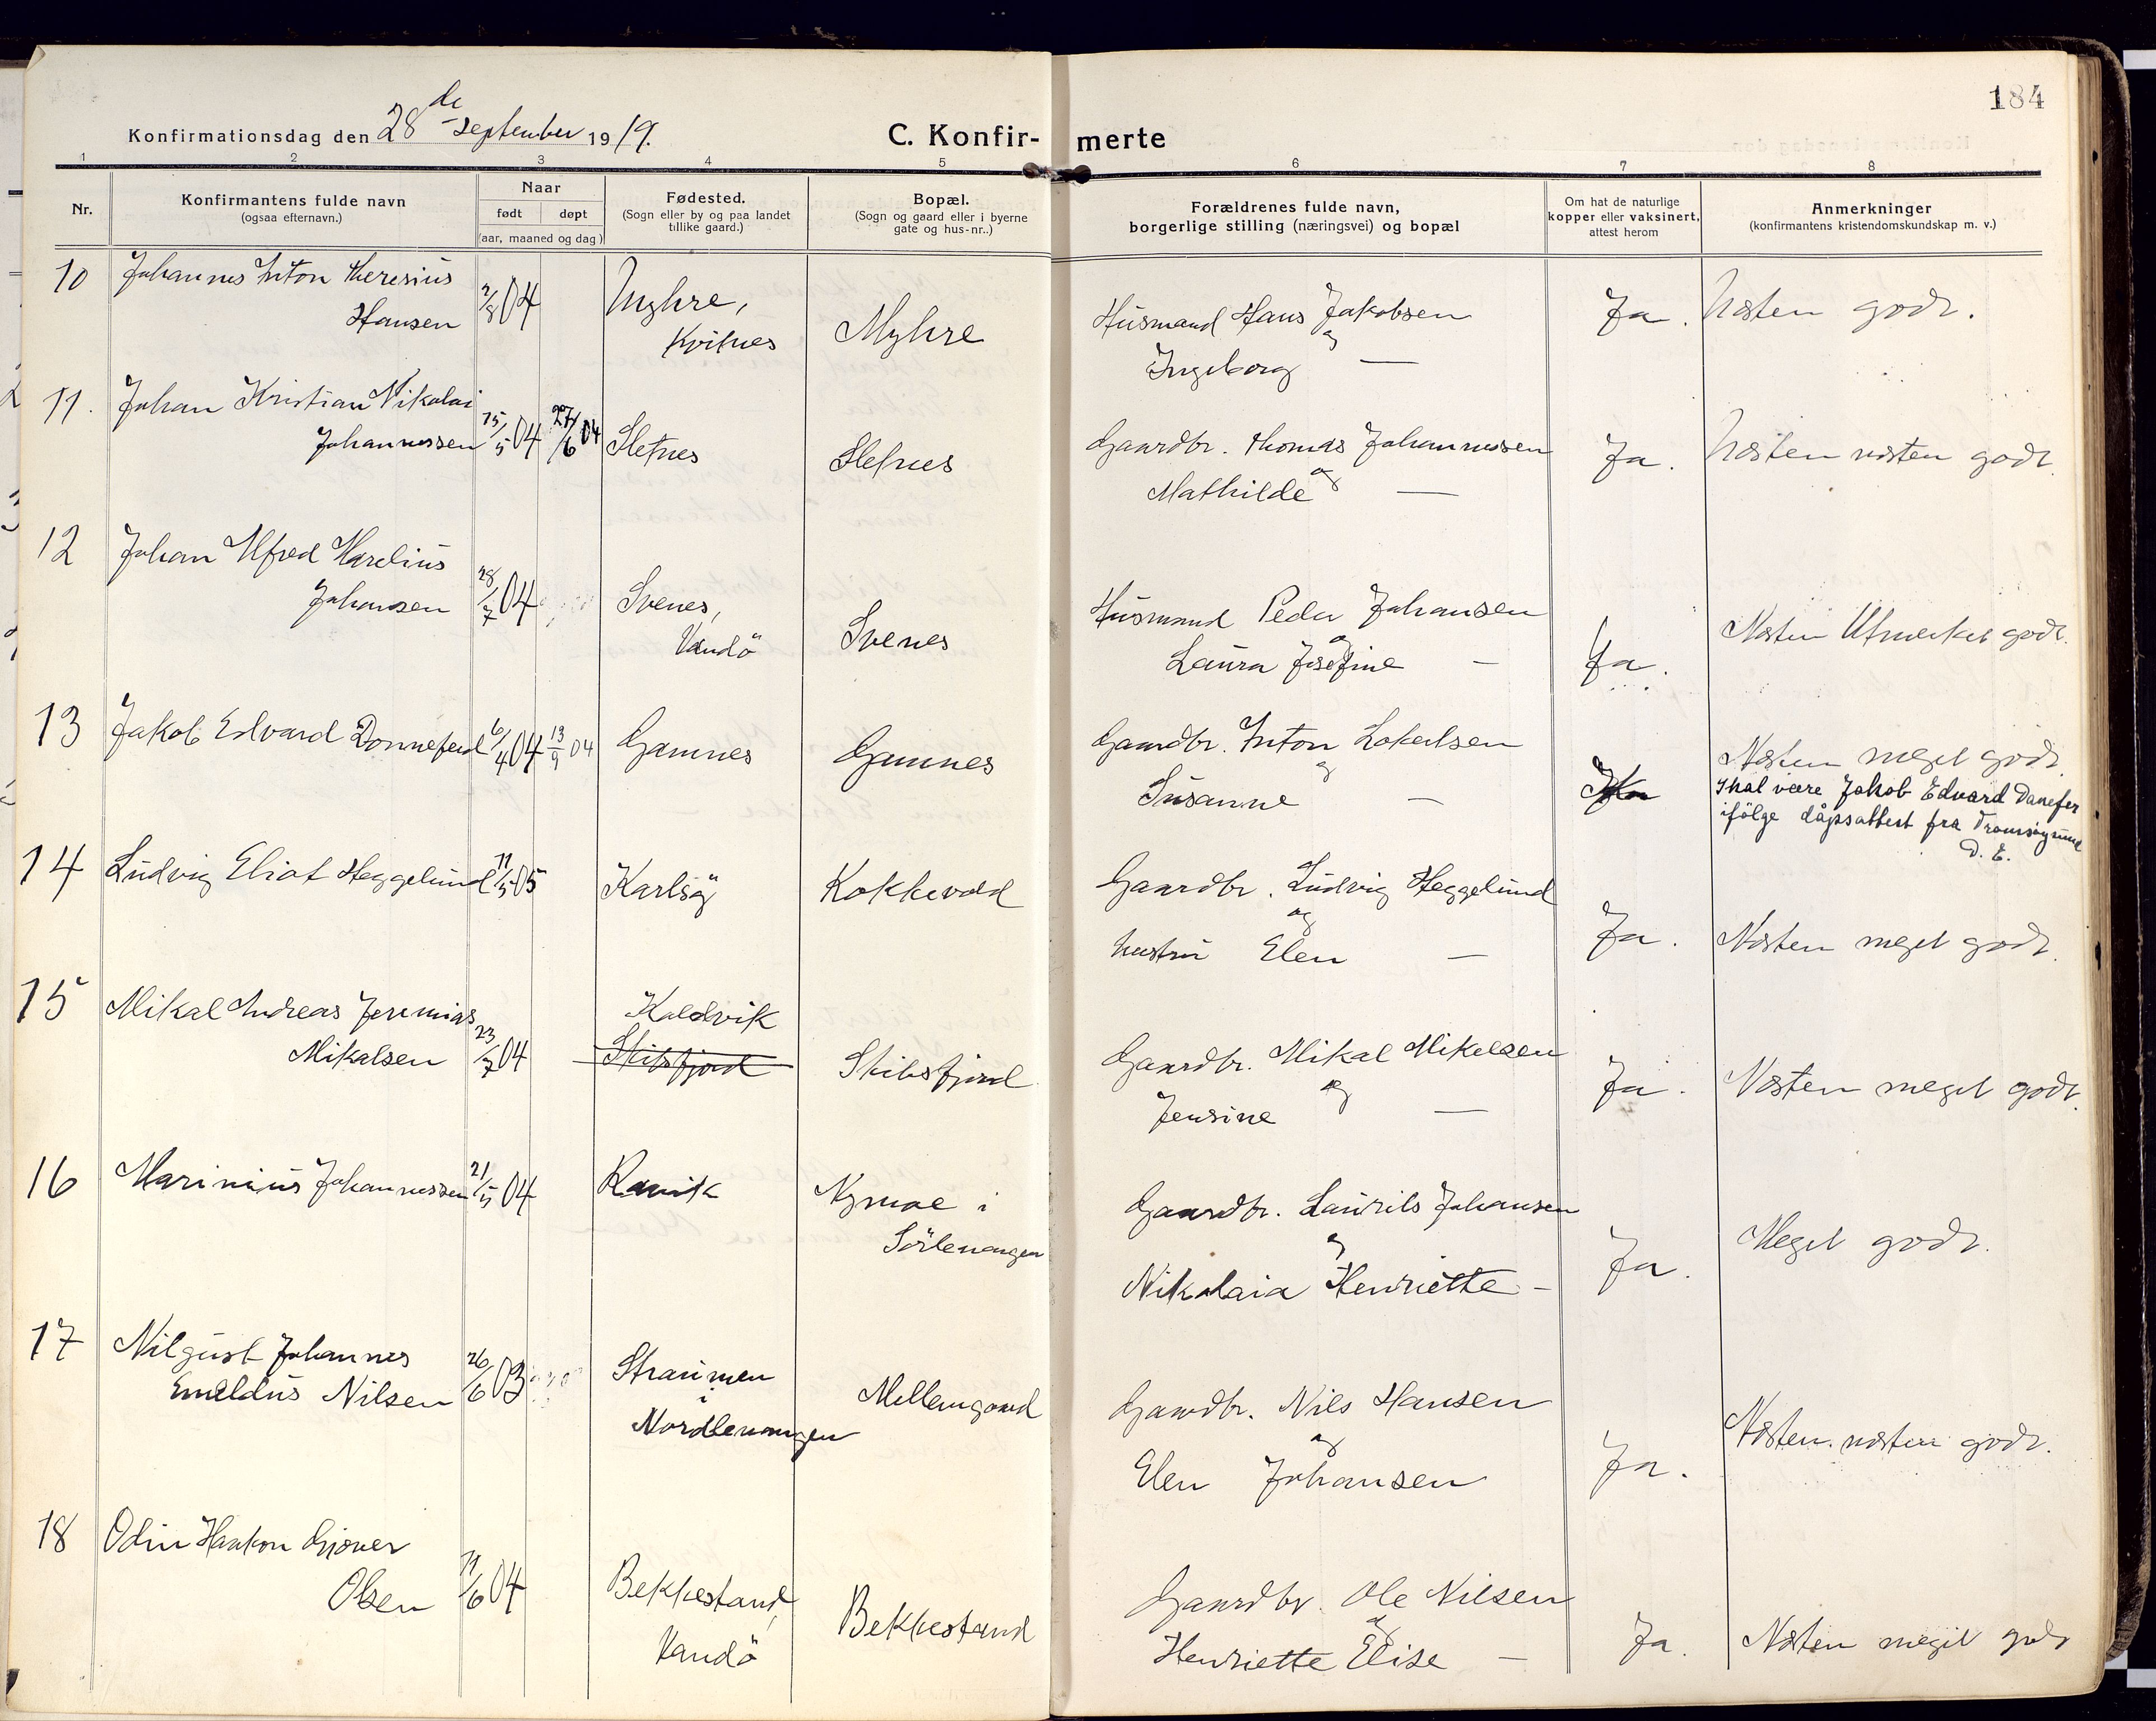 184
Konfirmationsdag den 28de september 1919.
C. Konfir-merte
1 2 3 4 5 6 7 8
Nr.
Konfirmantens fulde navn
(ogsaa efternavn.)
Naar
født døpt
(aar, maaned og dag)
Fødested.
(Sogn eller by og paa landet
tillike gaard.)
Bopæl.
(Sogn og gaard eller i byerne
gate og hus-nr..)
Forældrenes fulde navn,
borgerlige stilling (næringsvei) og bopæl
Om hat de naturlige
kopper eller vaksinert,
attest herom
Anmerkninger
(konfirmantens kristendomskundskap m. v.)
10 Johannes Anton Theresius
Hansen 2/8 04 Myhre,
Kvitnes Myhre
Husmand Hans Jakobsen
og
Ingeborg —
Ja. Næsten godt.
11. Johan Kristian Nikolai
Johannessen 15/5 04 27/6 04 Sletnes Sletnes
Gaardbr. Thomas Johannessen
og
Mathilde —
Ja. Næsten næsten godt.
12 Johan Alfred Marelius
Johansen 28/7 04 Svenes,
Vandö Svenes
Husmand Peder Johansen
og
Laura Josefine —
Ja. Næsten Utmerket godt.
13 Jakob Edvard Donnefeed 6/4 04 13/9 04 Gamnes Gamnes
Gaardbr. Anton Lokertsen
og
Susanne —
Ja Næsten meget godt.
Skal være Jakob Edvard Danefer
ifölge dåpsattest fra Tromsøysund
D. E.
14 Ludvig Eliot Heggelund 11/5 05 Karlsö Kokkevold
Gaardbr. Ludvig Heggelund
og
hustru Elen —
Ja. Næsten meget godt.
15 Mikal Andreas Jeremias
Mikalsen 23/7 04 Kaldvik
Skibsfjord Skibsfjord
Gaardbr. Mikal Mikelsen
og
Jensine —
Ja. Næsten meget godt.
16 Marinius Johannessen 21/5 04 Ravik Nymoe i
Sörlenangen
Gaardbr. Laurits Johansen
og
Nikolaia Henriette —
Ja. Meget godt.
17 Nilgust Johannes
Emeldus Nilsen 26/6 03 Straumen
i
Nordlenangen Mellemgaard
Gaardbr. Nils Hansen
og
Elen Johansen
Ja. Næsten næsten godt.
18 Odin Haakon Gjæver
Olsen 11/6 04 Bekkestand,
Vandö Bekkestand
Gaardbr. Ole Nilsen
og
Henriette Elise —
Ja. Næsten meget godt